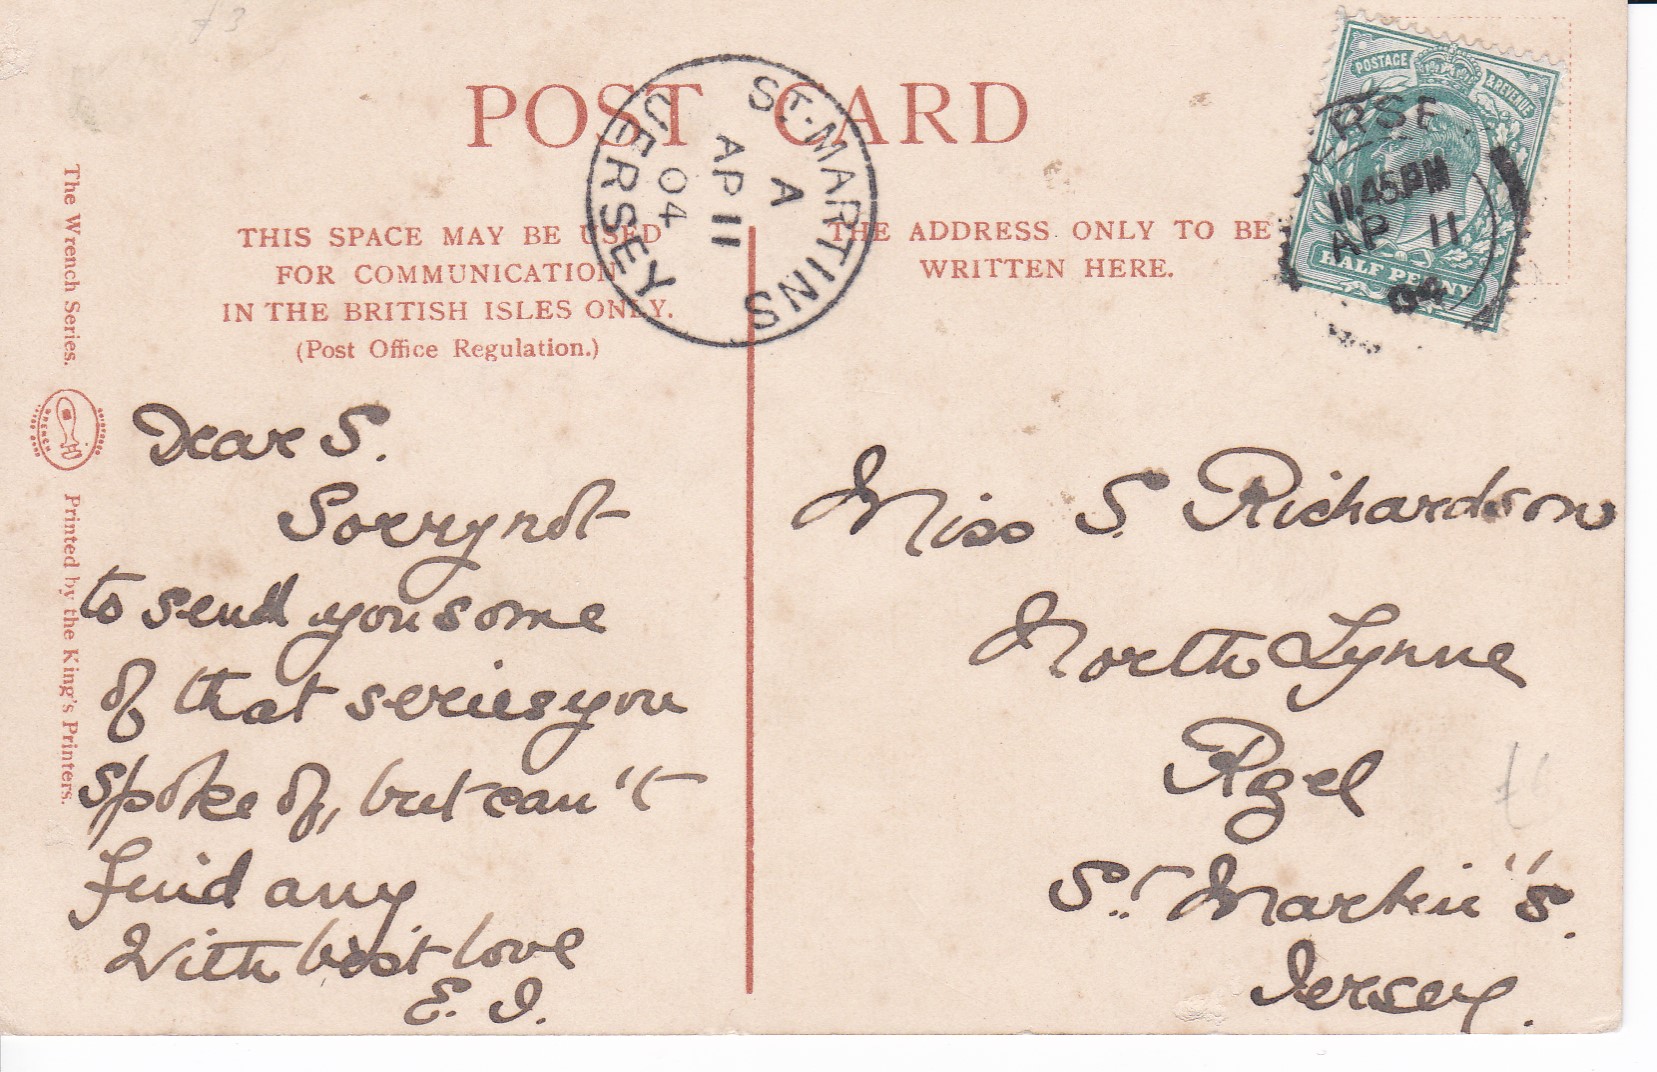 POST CARD
THIS SPACE MAY BE USED
FOR COMMUNICATION
IN THE BRITISH ISLES ONLY.
(Post Office Regulation.)
THE ADDRESS ONLY TO BE
WRITTEN HERE.
ST. MARTINS
A
AP 11
04
JERSEY
POSTAGE & REVENUE
HALF PENNY
RSE
11.45 PM
AP 11
04
The Wrench Series.
Printed by the King's Printers.
Dear S.
Sorry not
to send you some
of that series you
spoke of, but can't
find any
With best love
E. J.
Miss S. Richardson
North Lynne
Rozel
St Martin's.
Jersey.